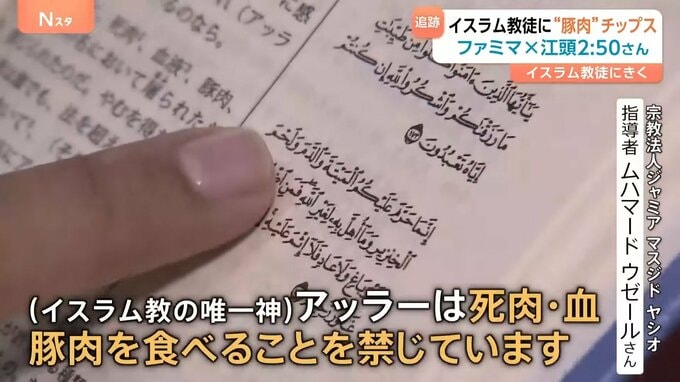 Nスタ
追跡
イスラム教徒に“豚肉”チップス
ファミマ×江頭2:50さん
イスラム教徒にきく
宗教法人ジャミア マスジド ヤシオ
指導者 ムハマード ウゼールさん
に感
(アッラ
るのなら。
豚肉、
において屠られた
やむを得
يَٰٓأَيُّهَا ٱلَّذِينَ ءَامَنُوا۟ كُلُوا۟ مِن طَيِّبَٰتِ
مَا رَزَقْنَٰكُمْ وَٱشْكُرُوا۟ لِلَّهِ إِن كُنتُمْ
إِيَّاهُ تَعْبُدُونَ ١٧٢
إِنَّمَا حَرَّمَ عَلَيْكُمُ ٱلْمَيْتَةَ وَٱلدَّمَ وَلَحْمَ
ٱلْخِنزِيرِ وَمَآ أُهِلَّ بِهِۦ لِغَيْرِ ٱللَّهِ فَمَنِ
بَاغٍ وَلَا عَادٍ فَلَآ إِثْمَ عَلَيْهِ
(イスラム教の唯一神)アッラーは死肉・血
豚肉を食べることを禁じています